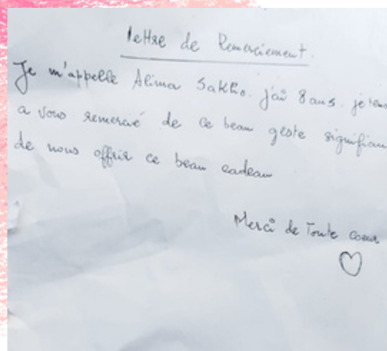 lettre de Remerciement.
Je m'appelle Alima Sakho. j'ai 8 ans. je
a vous remercié de ce beau geste
de nous offrir ce beau cadeau
Merci de Toute coeur